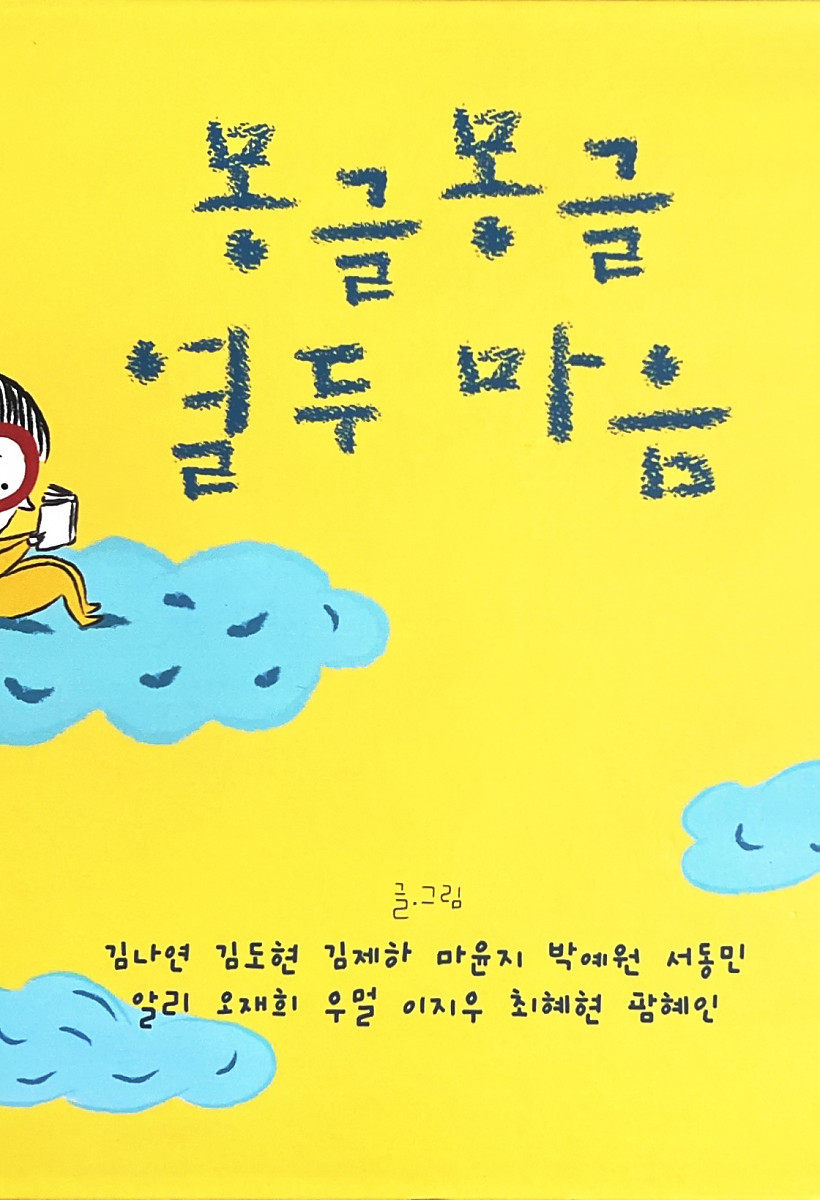 몽글몽글
열두 마음
글.그림
김나연 김도현 김제하 마윤지 박예원 서동민
알리 오재희 우멀 이지우 최혜현 팜혜인